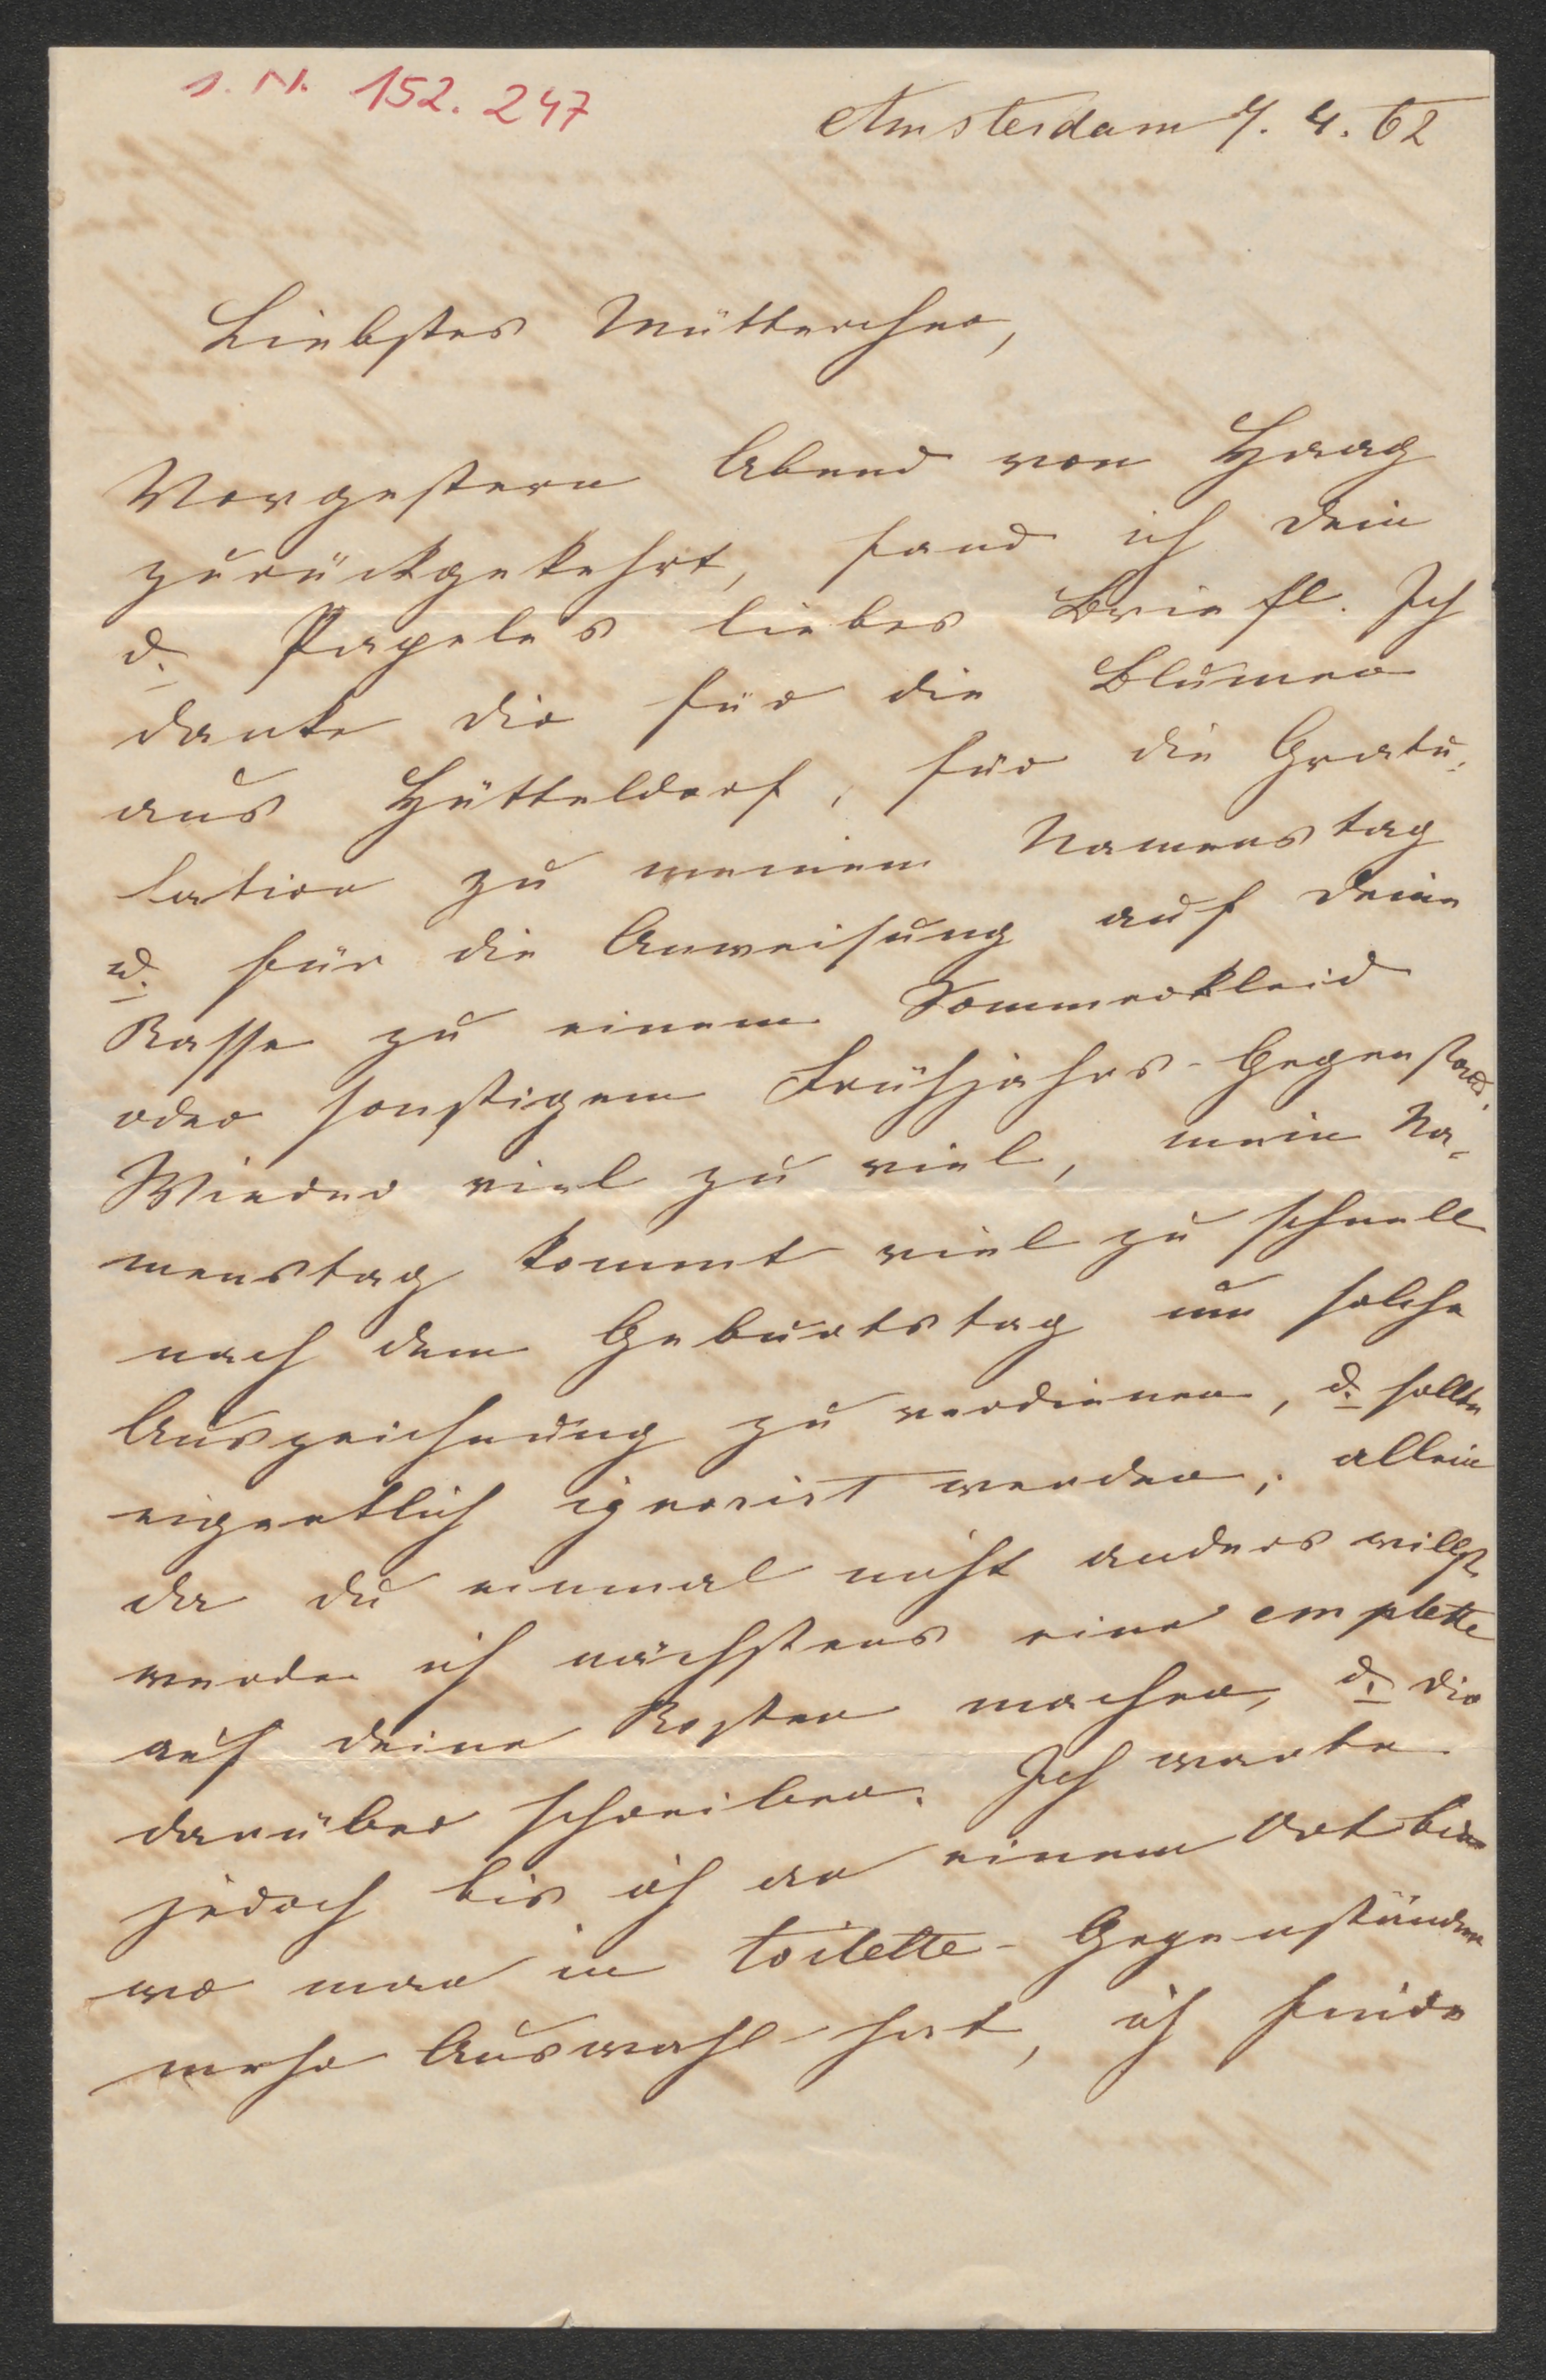 I. N. 152.247
Amsterdam 7. 4. 62
Liebstes Mütterchen,
Vorgestern Abend von Haag
zurückgekehrt, fand ich dein
u. Papele's liebes Briefl. Ich
danke dir für die Blumen
aus Hütteldorf, für die Gratu-
lation zu meinem Namenstag
u. für die Anweisung auf deine
Kasse zu einem Sommerkleid
oder sonstigem Frühjahrs-Gegenstand.
Wieder viel zu viel, mein Na-
menstag kommt viel zu schnell
nach dem Geburtstag um solche
Auszeichnung zu verdienen, u. sollte
eigentlich ignorirt werden; allein
da du einmal nicht anders willst
werde ich nächstens eine emplette
auf deine Kosten machen, u. dir
darüber schreiben. Ich warte
jedoch bis ich an einem Ort bin
wo man in toilette-Gegenständen
mehr Auswahl hat, ich finde